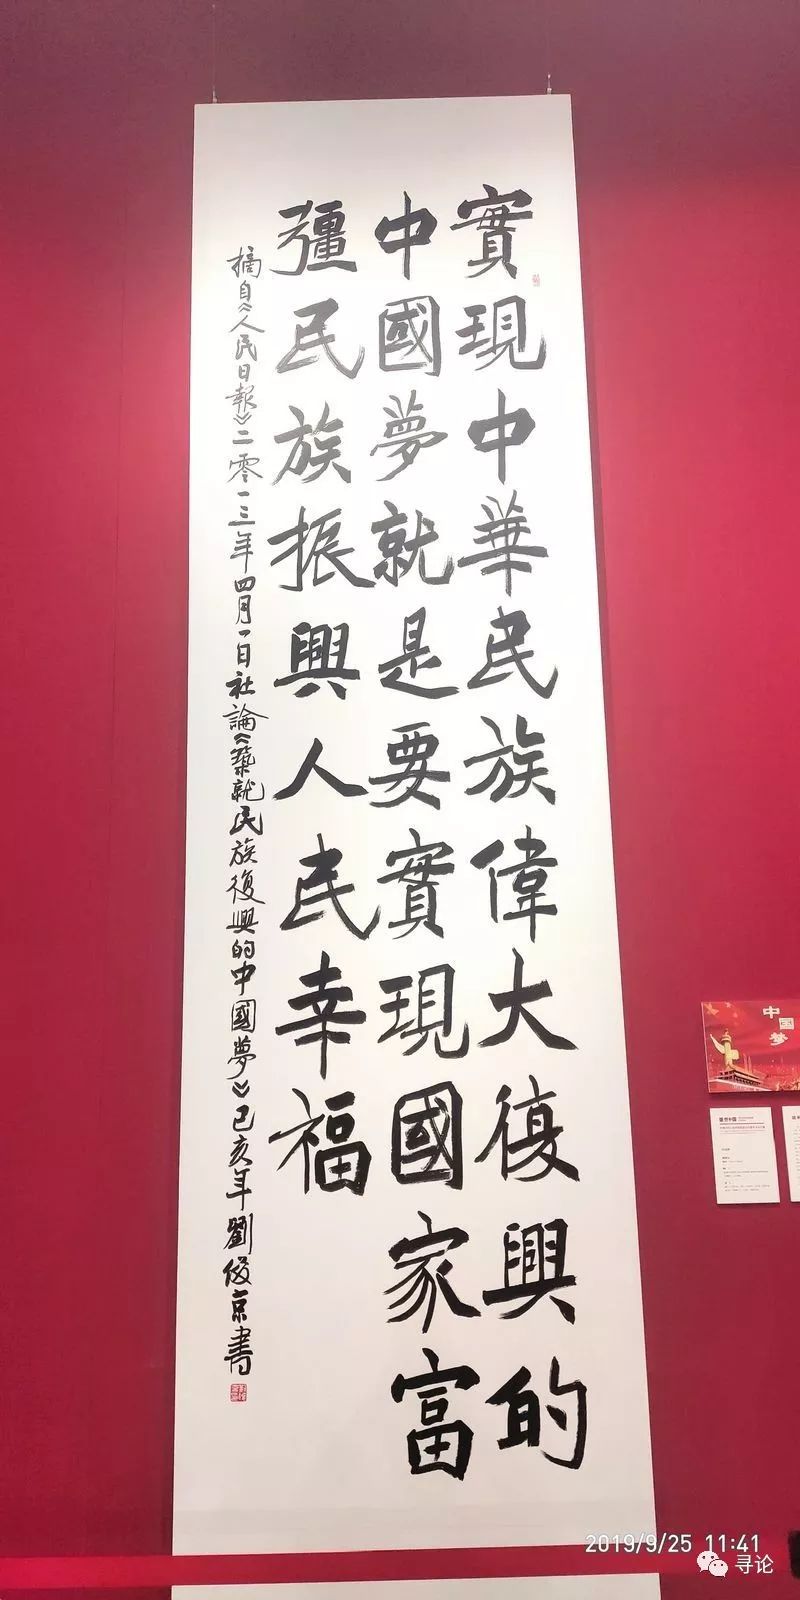 實現中華民族偉大復興的
中國夢就是要實現國家富
彊民族振興人民幸福
摘自《人民日報》二零一三年四月一日社論《築就民族復興的中國夢》己亥年劉俊京書
中
梦
2019/9/25 11:41
寻论